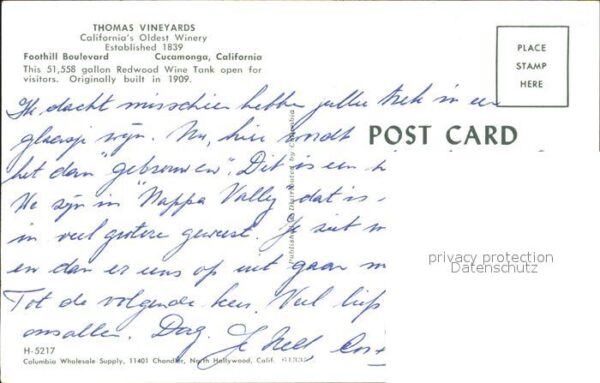 THOMAS VINEYARDS
California's Oldest Winery
Established 1839
Foothill Boulevard Cucamonga, California
This 51,558 gallon Redwood Wine Tank open for
visitors. Originally built in 1909.
PLACE
STAMP
HERE
POST CARD
Ik dacht misschien hebben jullie trek in een
glaasje wijn. Nu, hier wordt
het dan "gebrouwen". Dit is een
We zijn in "Nappa Vally" dat is
in veel grotere geweest. Je ziet
en dan er eens op uit gaan
Tot de volgende keer. Veel liefs
onsallen. Dag. Je Nell
Published & Distributed by Columbia
privacy protection
Datenschutz
H-5217
Columbia Wholesale Supply, 11401 Chandler, North Hollywood, Calif.